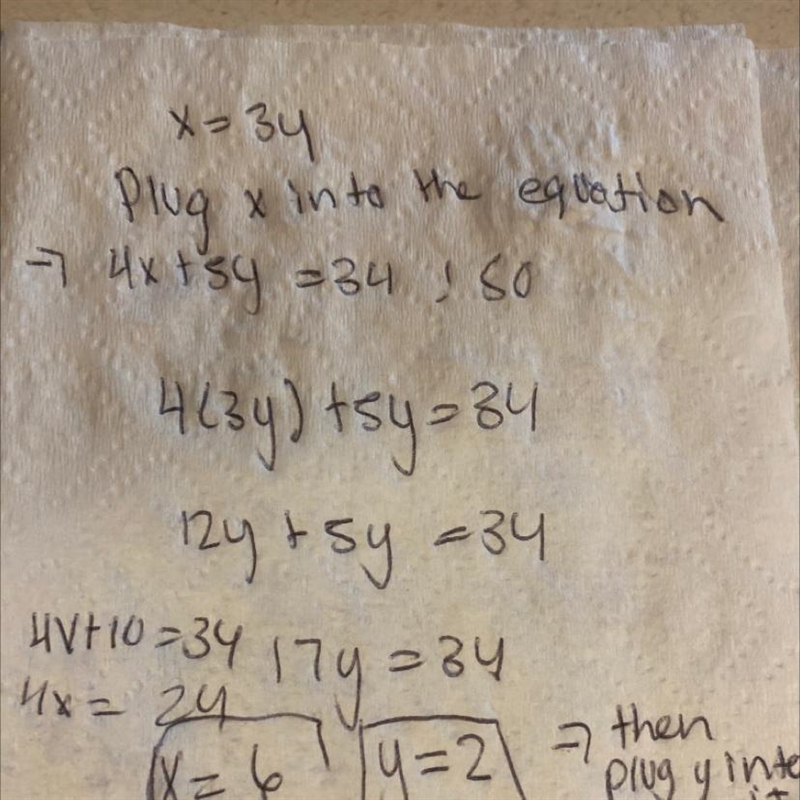 x = 3y
Plug x into the equation
→ 4x + 5y = 34 ; so
4(3y) + 5y = 34
12y + 5y = 34
4x + 10 = 34
17y = 34
4x = 24
x = 6
y = 2
→ then
plug y into